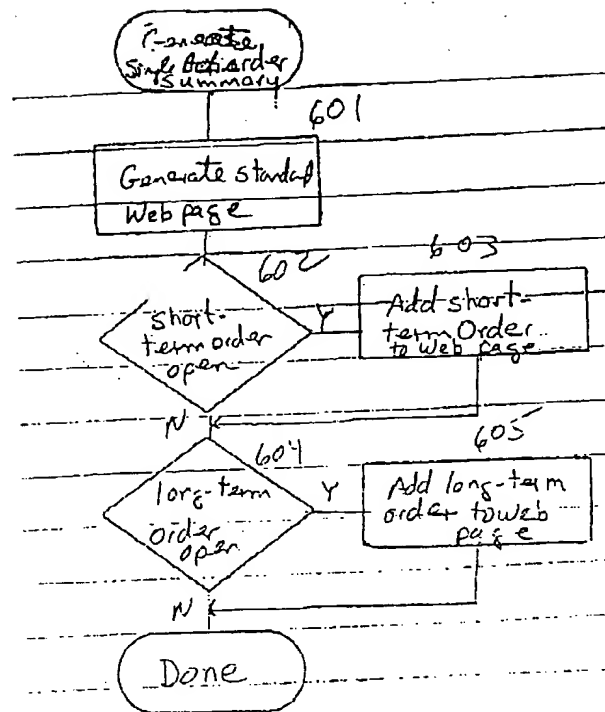 Generate
Single Action order
Summary
601
Generate standard
Web page
602
603
short-
term order
open
Y
Add short-
term Order
to Web page
N
604
605
long-term
order
open
Y
Add long-term
order to web
page
N
Done